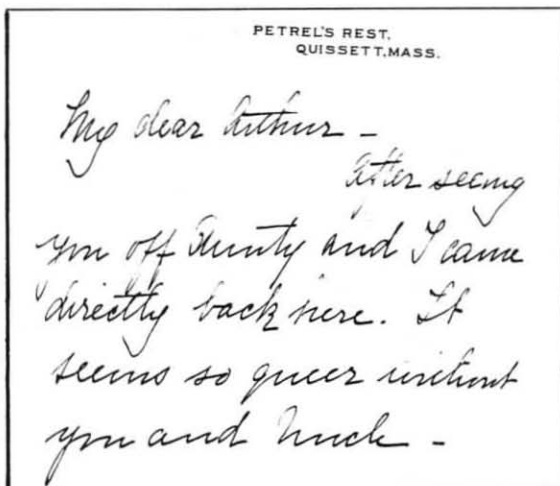 PETREL'S REST,
QUISSETT, MASS.
My dear Arthur –
After seeing
you off Aunty and I came
directly back here. It
seems so queer without
you and –